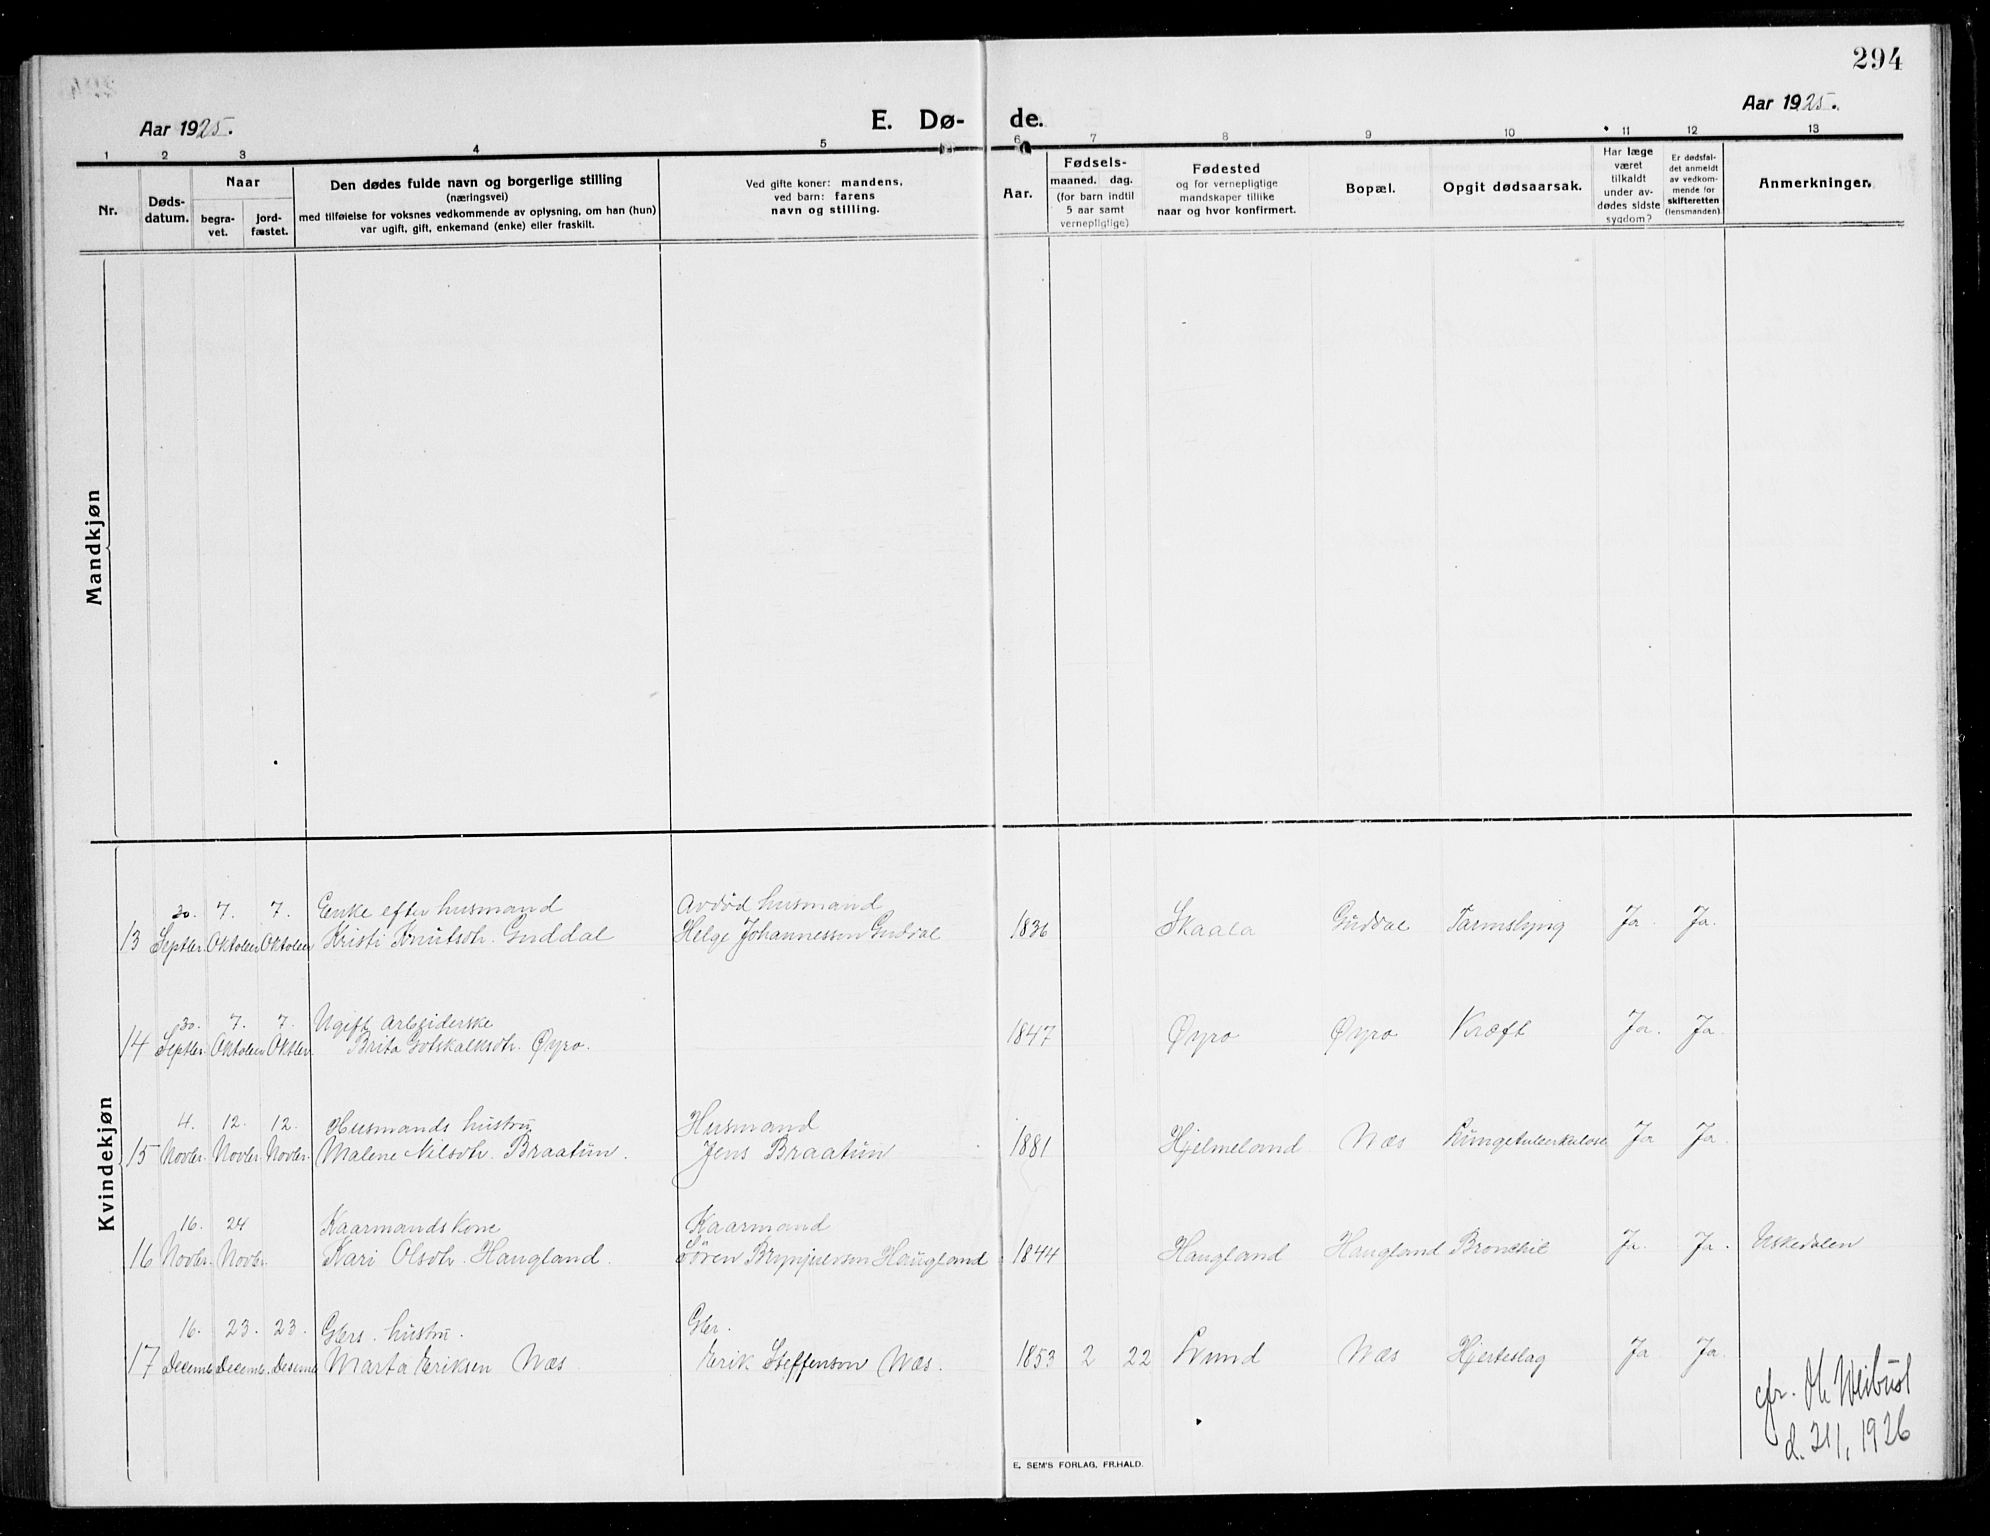 294
Aar 1925.
E. Dø-
de.
Aar 1925.
1 2 3 4 5 6 7 8 9 10 11 12 13
Nr.
Døds-
datum.
Naar
begra-
vet.
jord-
fæstet.
Den dødes fulde navn og borgerlige stilling
(næringsvei)
med tilføielse for voksnes vedkommende av oplysning, om han (hun)
var ugift, gift, enkemand (enke) eller fraskilt.
Ved gifte koner: mandens,
ved barn: farens
navn og stilling.
Aar.
Fødsels-
maaned. dag.
(for barn indtil
5 aar samt
vernepligtige)
Fødested
og for vernepligtige
mandskaper tillike
naar og hvor konfirmert.
Bopæl.
Opgit dødsaarsak.
Har læge
været
tilkaldt
under av-
dødes sidste
sygdom?
Er dødsfal-
det anmeldt
av vedkom-
mende for
skifteretten
(lensmanden)
Anmerkninger.
Mandkjøn
Kvindekjøn
30. 7. 7. Enke efter husmand Avdød husmand
13 Septbr. Oktober Oktober Kristi Knutsdtr. Guddal Helge Johannesson Guddal 1836 Skaala Guddal Tarmslyng Ja. Ja.
30. 7. 7. Ugift arbeiderske
14 Septbr. Oktober Oktbr. Brita Gotskalksdtr. Øyro. 1847 Øyro Øyro Kræft Ja. Ja.
4. 12. 12. Husmands hustru Husmand
15 Novbr. Novbr. Novbr. Malene Nilsdtr. Braatun. Jens Braatun 1881 Hjelmeland Næs Lungetuberkulose Ja Ja.
16. 24 Kaarmandskone Kaarmand
16 Novbr. Novbr. Kari Olsdtr. Haugland. Søren Brynjulvson Haugland 1844 Haugland Haugland Bronchit Ja. Ja. Uskedalen
16. 23. 23. Gbrs. hustru. Gbr.
17 Decemb. Decemb. Desemb. Marta Eriksen Næs. Erik Steffenson Næs. 1853 2 22 Lund Næs Hjerteslag Ja Ja.
cfr. Ol. Weibust
d. 21/1, 1926
E. SEM'S FORLAG, FR.HALD.